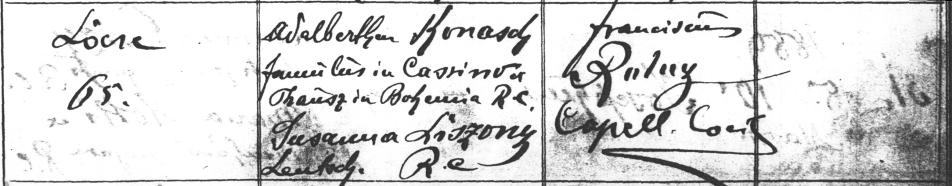 Löcse
65.
Adalberthus Konasch
famulus in Cassinova
in Bohemia R.C.
Susanna Liszony
Leutsch. R.C
Franciscus
Capell. Coop